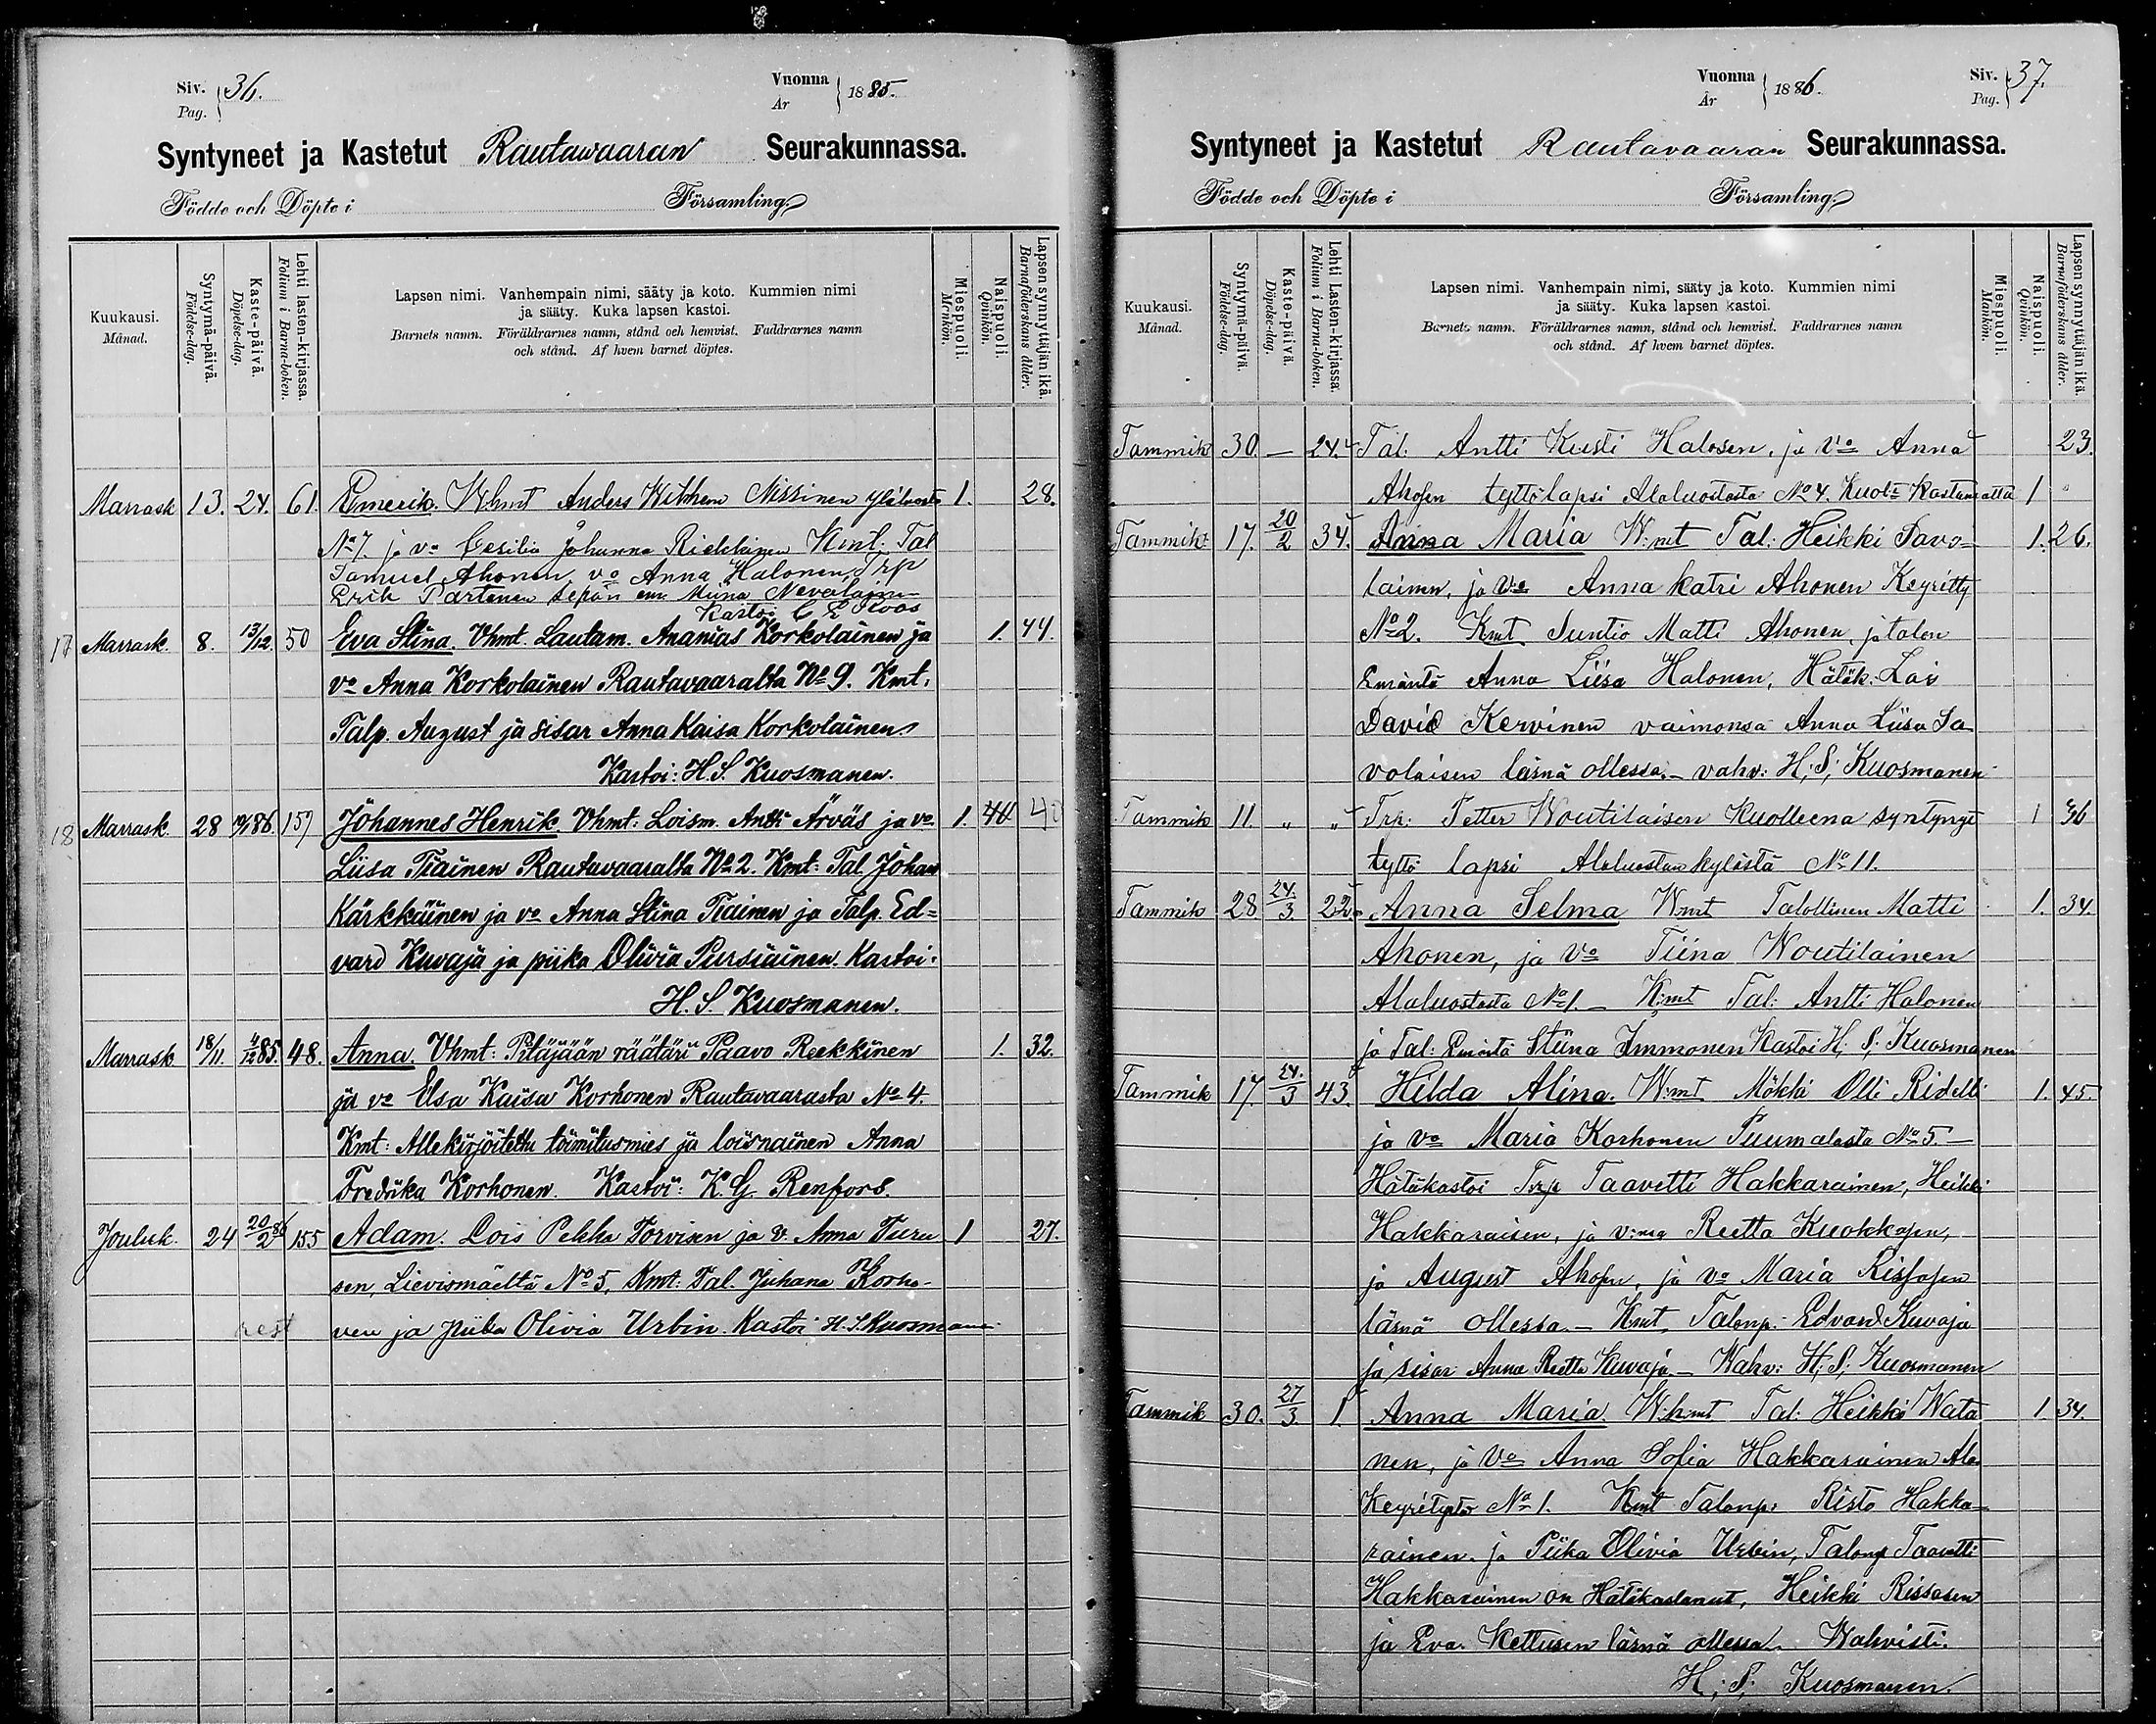 Siv. Pag. 36.
Vuonna År 1885.
Syntyneet ja Kastetut Rautawaaran Seurakunnassa.
Födde och Döpte i Församling.
Kuukausi. Månad.
Syntymä-päivä. Födelse-dag.
Kaste-päivä. Döpelse-dag.
Lehti lasten-kirjassa. Folium i Barna-boken.
Lapsen nimi. Vanhempain nimi, sääty ja koto. Kummien nimi
ja sääty. Kuka lapsen kastoi.
Barnets namn. Föräldrarnes namn, stånd och hemvist. Faddrarnes namn
och stånd. Af hvem barnet döptes.
Miespuoli. Menkön.
Naispuoli. Qvinkön.
Lapsen synnyttäjän ikä. Barnaföderskans ålder.
Marrask 13. 24. 61. Emerik. Whmt Anders Wilhem Nissinen Yläluosta 1. 28.
No 7. ja vo Cesilia Johanna Riekkinen Kmt: Tal
Samuel Ahonen, vo Anna Halonen, Trp
Erik Partanen sepän em. Miina Nevalainen
Kastoi C E Roos
17 Marrask. 8. 13/12 50 Eva Stina. Vhmt. Lautam. Ananias Korkolainen ja 1. 44.
vo Anna Korkolainen Rautavaaralta No 9. Kmt.
Talp. August ja sisar Anna Kaisa Korkolainen
Kastoi: H. S. Kuosmanen.
18 Marrask. 28 19/1 86 157 Johannes Henrik Vhmt: Loism. Antti Ärväs ja vo 1. 40 40
Liisa Tiainen Rautavaaralta No 2. Kmt: Tal. Johan
Kärkkäinen ja vo Anna Stina Tiainen ja Talp. Ed=
vard Kuvaja ja piika Olivia Pursiainen. Kastoi:
H. S. Kuosmanen.
Marrask 18/11. 4/12 85. 48. Anna. Vhmt: Pitäjään räätäri Paavo Reekkinen 1. 32.
ja vo Elsa Kaisa Korhonen Rautavaarasta No 4.
Kmt: Allekirjoitettu toimitusmies ja loisnainen Anna
Fredrika Korhonen. Kastoi: K. G. Renfors.
Jouluk. 24 20/2 86 155 Adam. Lois Pekka Torvisen ja v. Anna Turu 1 27.
sen, Lievismäeltä No 5. Kmt: Tal. Juhana Korho-
rest
nen ja piika Olivia Urbin. Kastoi H. S. Kuosmanen
Vuonna År 1886.
Siv. Pag. 37.
Syntyneet ja Kastetut Rautavaaran Seurakunnassa.
Födde och Döpte i Församling.
Kuukausi. Månad.
Syntymä-päivä. Födelse-dag.
Kaste-päivä. Döpelse-dag.
Lehti Lasten-kirjassa. Folium i Barna-boken.
Lapsen nimi. Vanhempain nimi, sääty ja koto. Kummien nimi
ja sääty. Kuka lapsen kastoi.
Barnets namn. Föräldrarnes namn, stånd och hemvist. Faddrarnes namn
och stånd. Af hvem barnet döptes.
Miespuoli. Mänkön.
Naispuoli. Qvinkön.
Lapsen synnyttäjän ikä. Barnaföderskans ålder.
Tammik 30. — 24. Tal: Antti Kusti Halosen, ja vo Anna 23.
Ahosen tyttölapsi Alaluostasta No 4. Kuol= Kastamatta 1
Tammik 17. 20/2 34. Anna Maria W:mt Tal: Heikki Savo- 1. 26.
lainen, ja vo Anna Katri Ahonen Keyritty
No 2. Kmt Suntio Matti Ahonen, ja talon
Emäntä Anna Liisa Halonen, Hätäk: Lois
David Kervinen vaimonsa Anna Liisa Sa
volaisen läsnä ollessa. – vahv: H; S; Kuosmanen
Tammik 11. „ „ Trp: Petter Woutilaisen Kuolleena syntynyt 1 36
tyttö lapsi Alaluostan kylästä No 11.
Tammik 28 24./3 22. Anna Selma W:mt Talollinen Matti 1. 34.
Ahonen, ja vo Tiina Woutilainen
Alaluostasta No 1. – K:mt Tal: Antti Halonen
ja Tal: Emäntä Stiina Immonen Kastoi H; S; Kuosmanen
Tammik 17. 24./3 43. Hilda Alina. W:mt Mökki Olli Ridelli 1. 45.
ja vo Maria Korhonen Puumalasta No 5. –
Hätäkastoi Trp Taavetti Hakkarainen, Heikki
Hakkaraisen, ja v:nsa Reetta Kuokkasen,
ja August Ahosen, ja vo Maria Rissasen
läsnä ollessa. – Kmt, Talonp: Edvard Kuvaja
ja sisar Anna Reetta Kuvaja. – Wahv: H; S; Kuosmanen
Tammik 30. 27/3 1. Anna Maria. W:h:mt Tal: Heikki Wata 1. 34.
nen, ja Vo Anna Sofia Hakkarainen Ala
Keyritystä No 1. Kmt Talonp: Risto Hakka-
rainen, ja Piika Olivia Urbin, Talonp Taavetti
Hakkarainen on Hätäkastanut, Heikki Rissasen
ja Eva Kettusen läsnä ollessa. Wahvisti.
H; S; Kuosmanen.